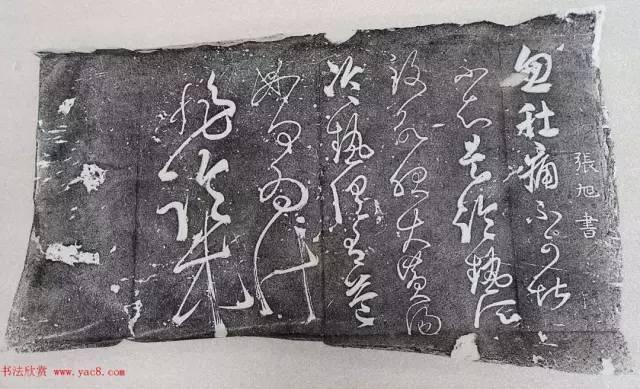 張旭書
忽肚痛不可堪
不知是冷熱所
致欲服大黃湯
冷熱俱有益
如何為計
非臨床
书法欣赏 www.yac8.com